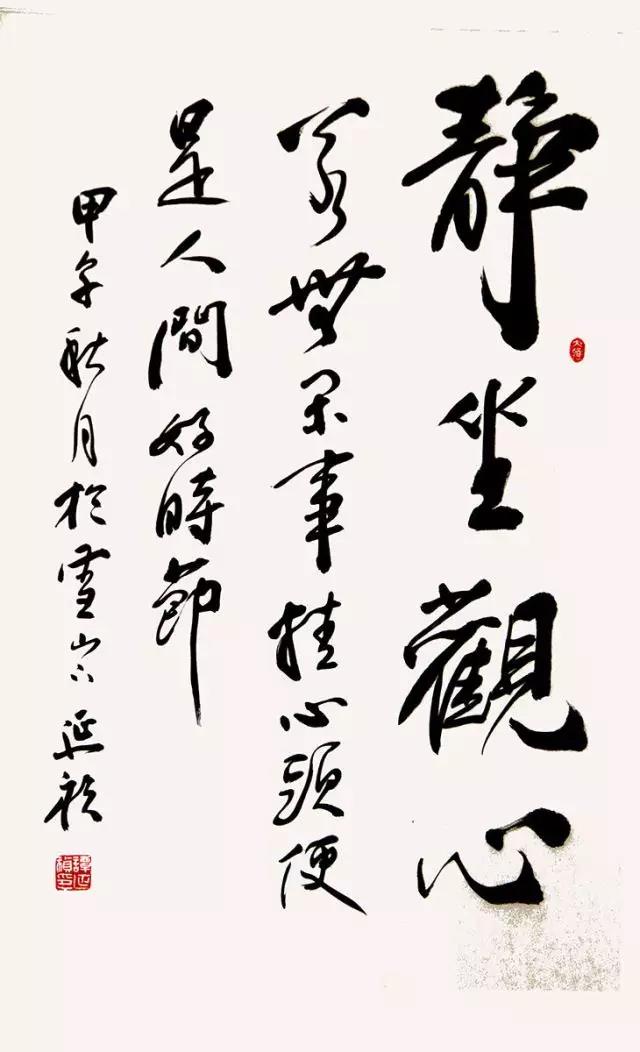 靜坐觀心
若無閑事挂心頭便
是人間好時節
甲午秋月於雪 延